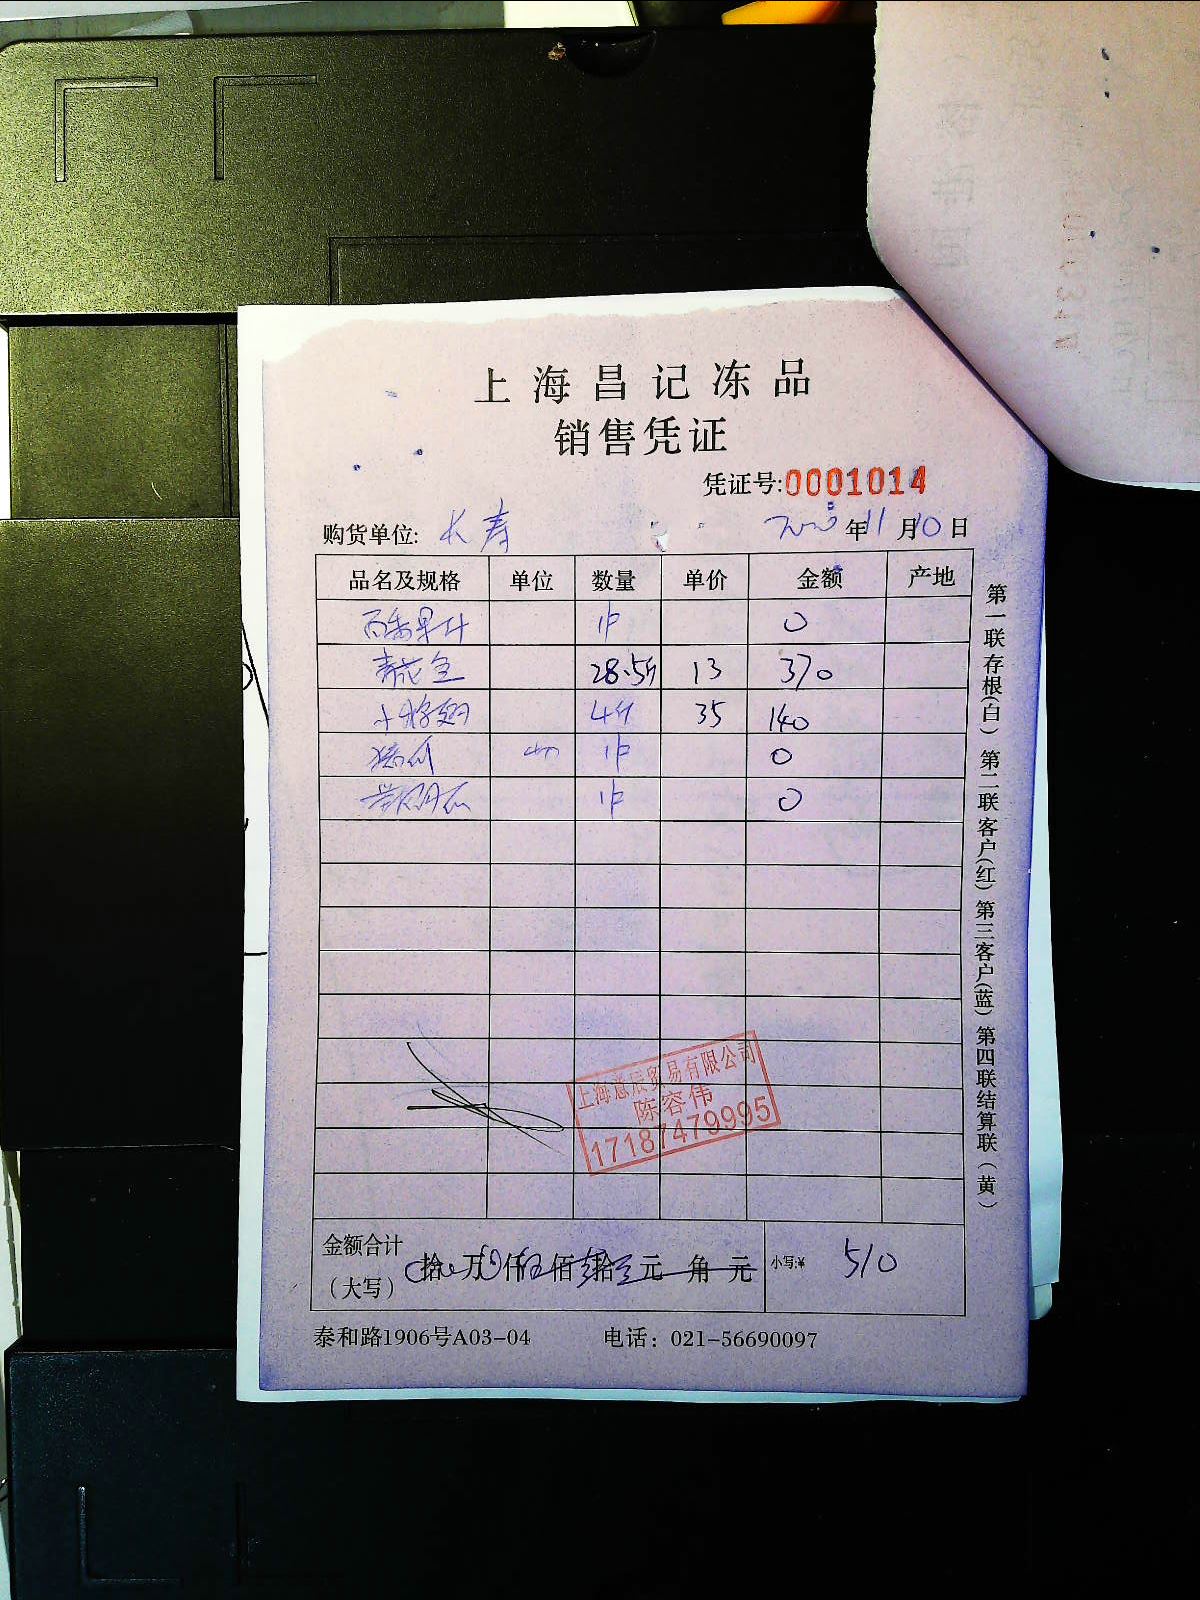 上海昌记冻品
销售凭证
凭证号:0001014
购货单位: 长寿 2020年11月10日
品名及规格 单位 数量 单价 金额 产地
百香果汁 1件 0
28.5斤 13 370
4斤 35 140
1件 0
1件 0
上海 贸易有限公司
陈容伟
17187479995
金额合计
(大写) 拾 万 仟 佰 拾 元 角 元 小写:¥ 510
泰和路1906号A03-04 电话: 021-56690097
第一联存根(白) 第二联客户(红) 第三客户(蓝) 第四联结算联(黄)